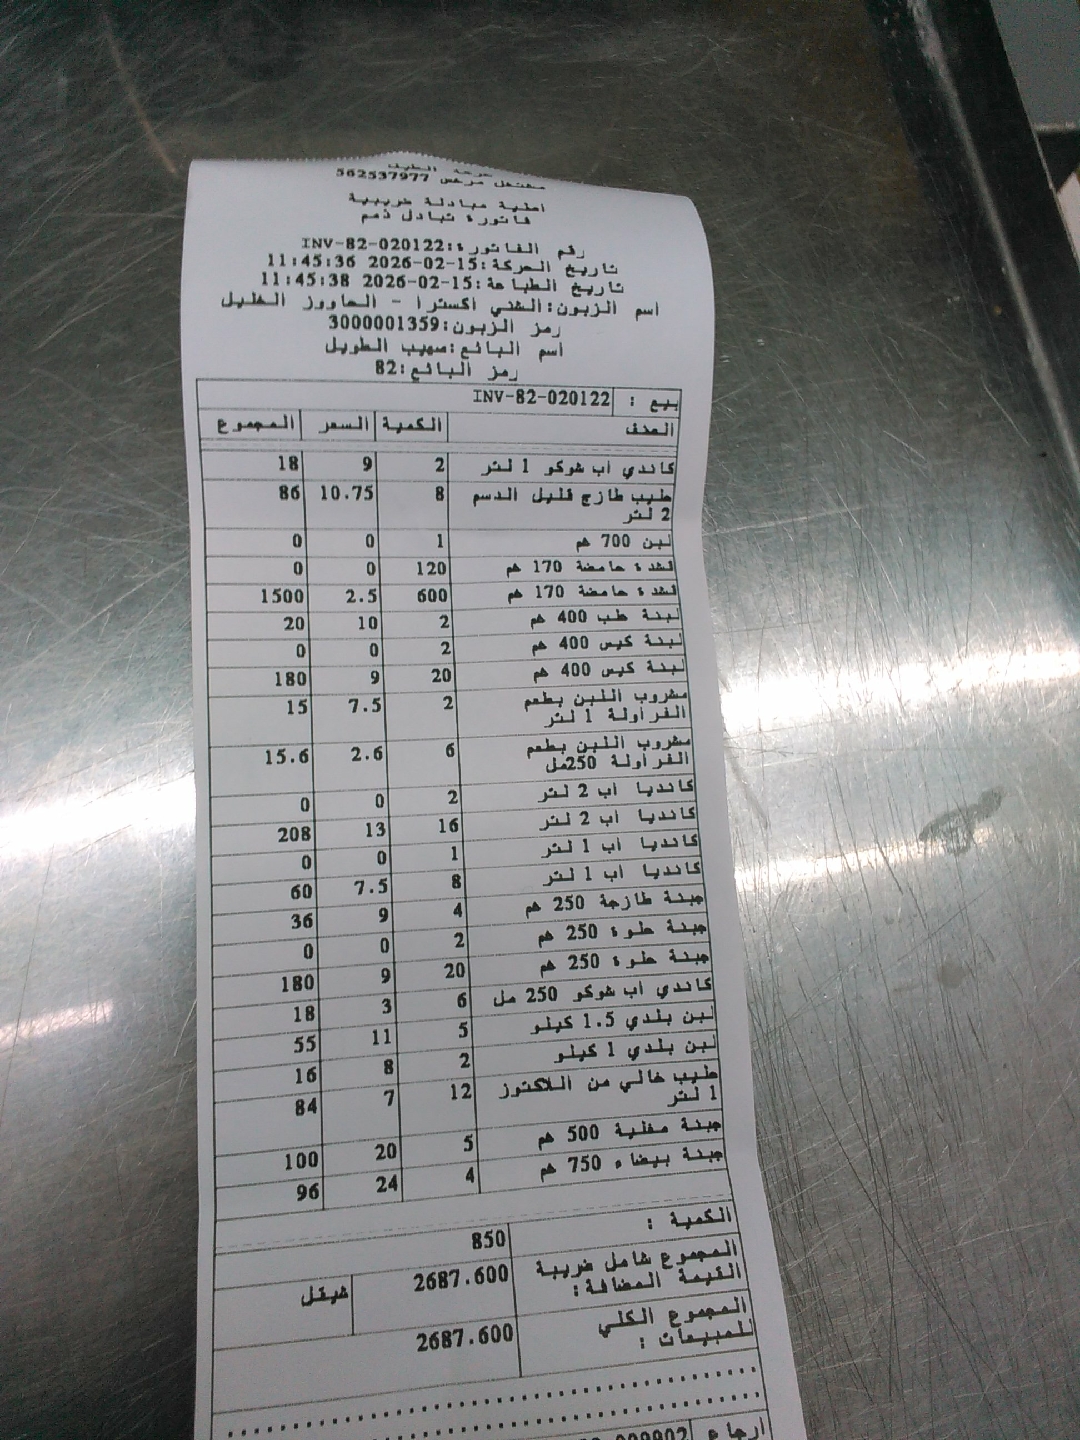 مشتغل مرخص 562537977
ارسلية مبادلة ضريبية
فاتورة تبادل ذمم
رقم الفاتورة:INV-82-020122
تاريخ الحركة:15-02-2026 11:45:36
تاريخ الطباعة:15-02-2026 11:45:38
اسم الزبون:الشني اكسترا - الحاووز الخليل
رمز الزبون:3000001359
اسم البائع:صهيب الطويل
رمز البائع:82
بيع : INV-82-020122
الصنف الكمية السعر المجموع
كاندي اب شوكو 1 لتر 2 9 18
حليب طازج قليل الدسم 8 10.75 86
2 لتر
لبن 700 غم 1 0 0
قشدة حامضة 170 غم 120 0 0
قشدة حامضة 170 غم 600 2.5 1500
لبنة علب 400 غم 2 10 20
لبنة كيس 400 غم 2 0 0
لبنة كيس 400 غم 20 9 180
مشروب اللبن بطعم 2 7.5 15
الفراولة 1 لتر
مشروب اللبن بطعم 6 2.6 15.6
الفراولة 250مل
كانديا اب 2 لتر 2 0 0
كانديا اب 2 لتر 16 13 208
كانديا اب 1 لتر 1 0 0
كانديا اب 1 لتر 8 7.5 60
جبنة طازجة 250 غم 4 9 36
جبنة حلوة 250 غم 2 0 0
جبنة حلوة 250 غم 20 9 180
كاندي اب شوكو 250 مل 6 3 18
لبن بلدي 1.5 كيلو 5 11 55
لبن بلدي 1 كيلو 2 8 16
حليب خالي من اللاكتوز 12 7 84
1 لتر
جبنة مغلية 500 غم 5 20 100
جبنة بيضاء 750 غم 4 24 96
الكمية : 850
المجموع شامل ضريبة
القيمة المضافة: 2687.600 شيقل
المجموع الكلي
للمبيعات : 2687.600
ارجاع